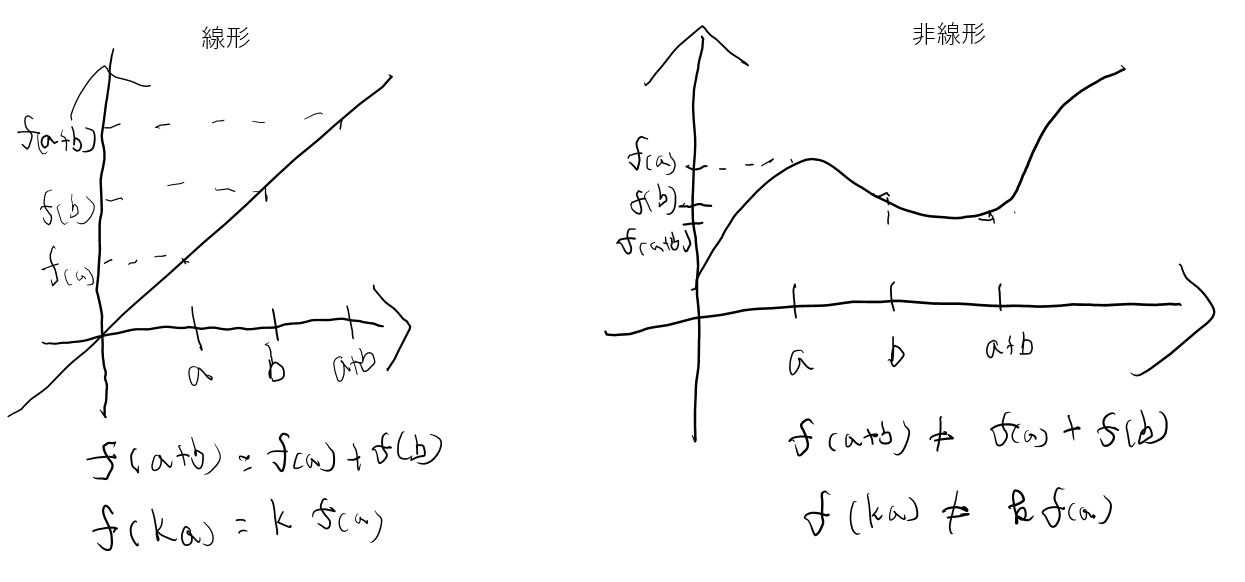 線形
f(a+b)
f(b)
f(a)
a b a+b
f(a+b) = f(a) + f(b)
f(ka) = k f(a)
非線形
f(a)
f(b)
f(a+b)
a b a+b
f(a+b) ≠ f(a) + f(b)
f(ka) ≠ k f(a)